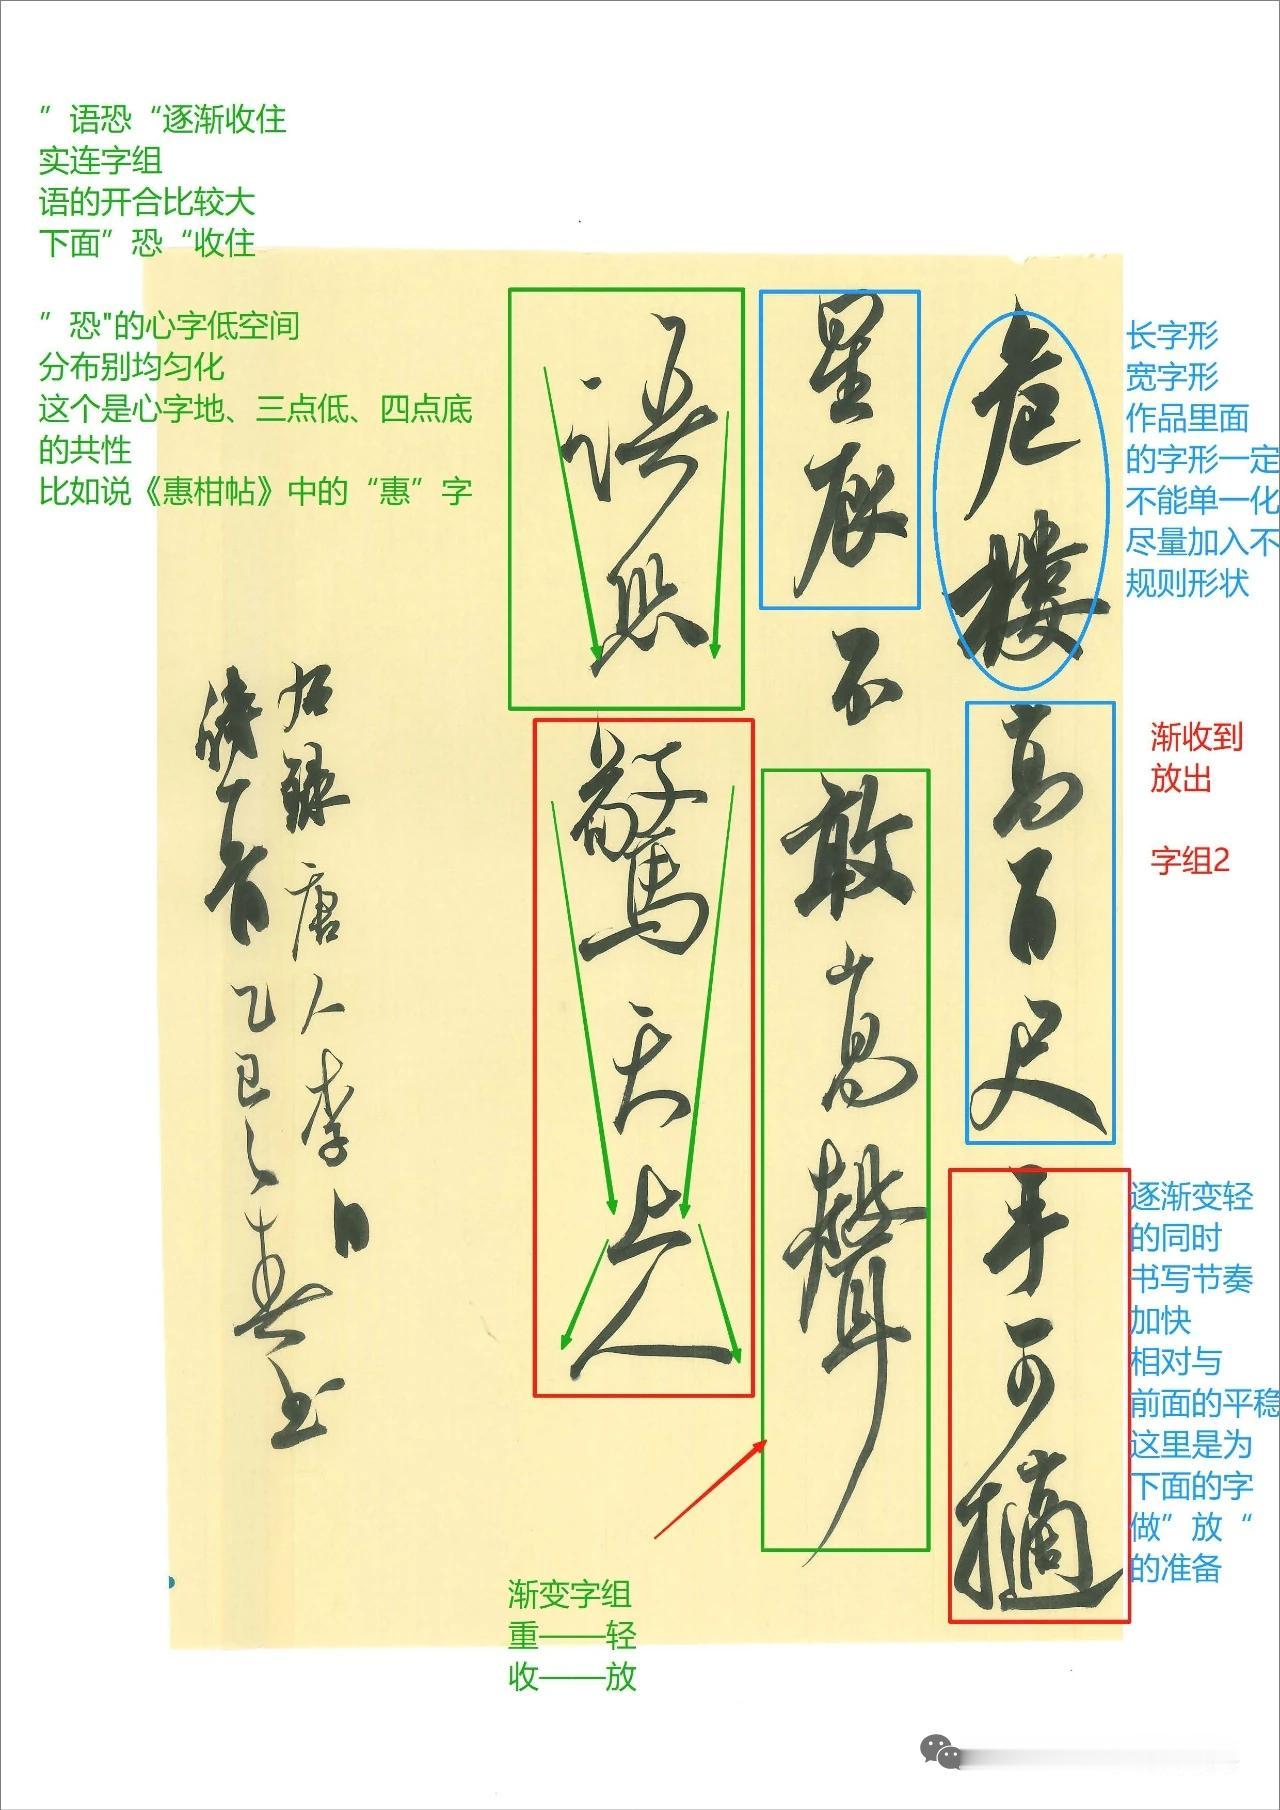 ”语恐“逐渐收住
实连字组
语的开合比较大
下面”恐“收住
”恐"的心字低空间
分布别均匀化
这个是心字地、三点低、四点底
的共性
比如说《惠柑帖》中的“惠”字
长字形
宽字形
作品里面
的字形一定
不能单一化
尽量加入不
规则形状
渐收到
放出
字组2
逐渐变轻
的同时
书写节奏
加快
相对与
前面的平稳
这里是为
下面的字
做”放“
的准备
危樓高百尺手可摘
星辰不敢高聲
語恐驚天上人
右録唐人李白
詩一首乙巳之春书
渐变字组
重——轻
收——放